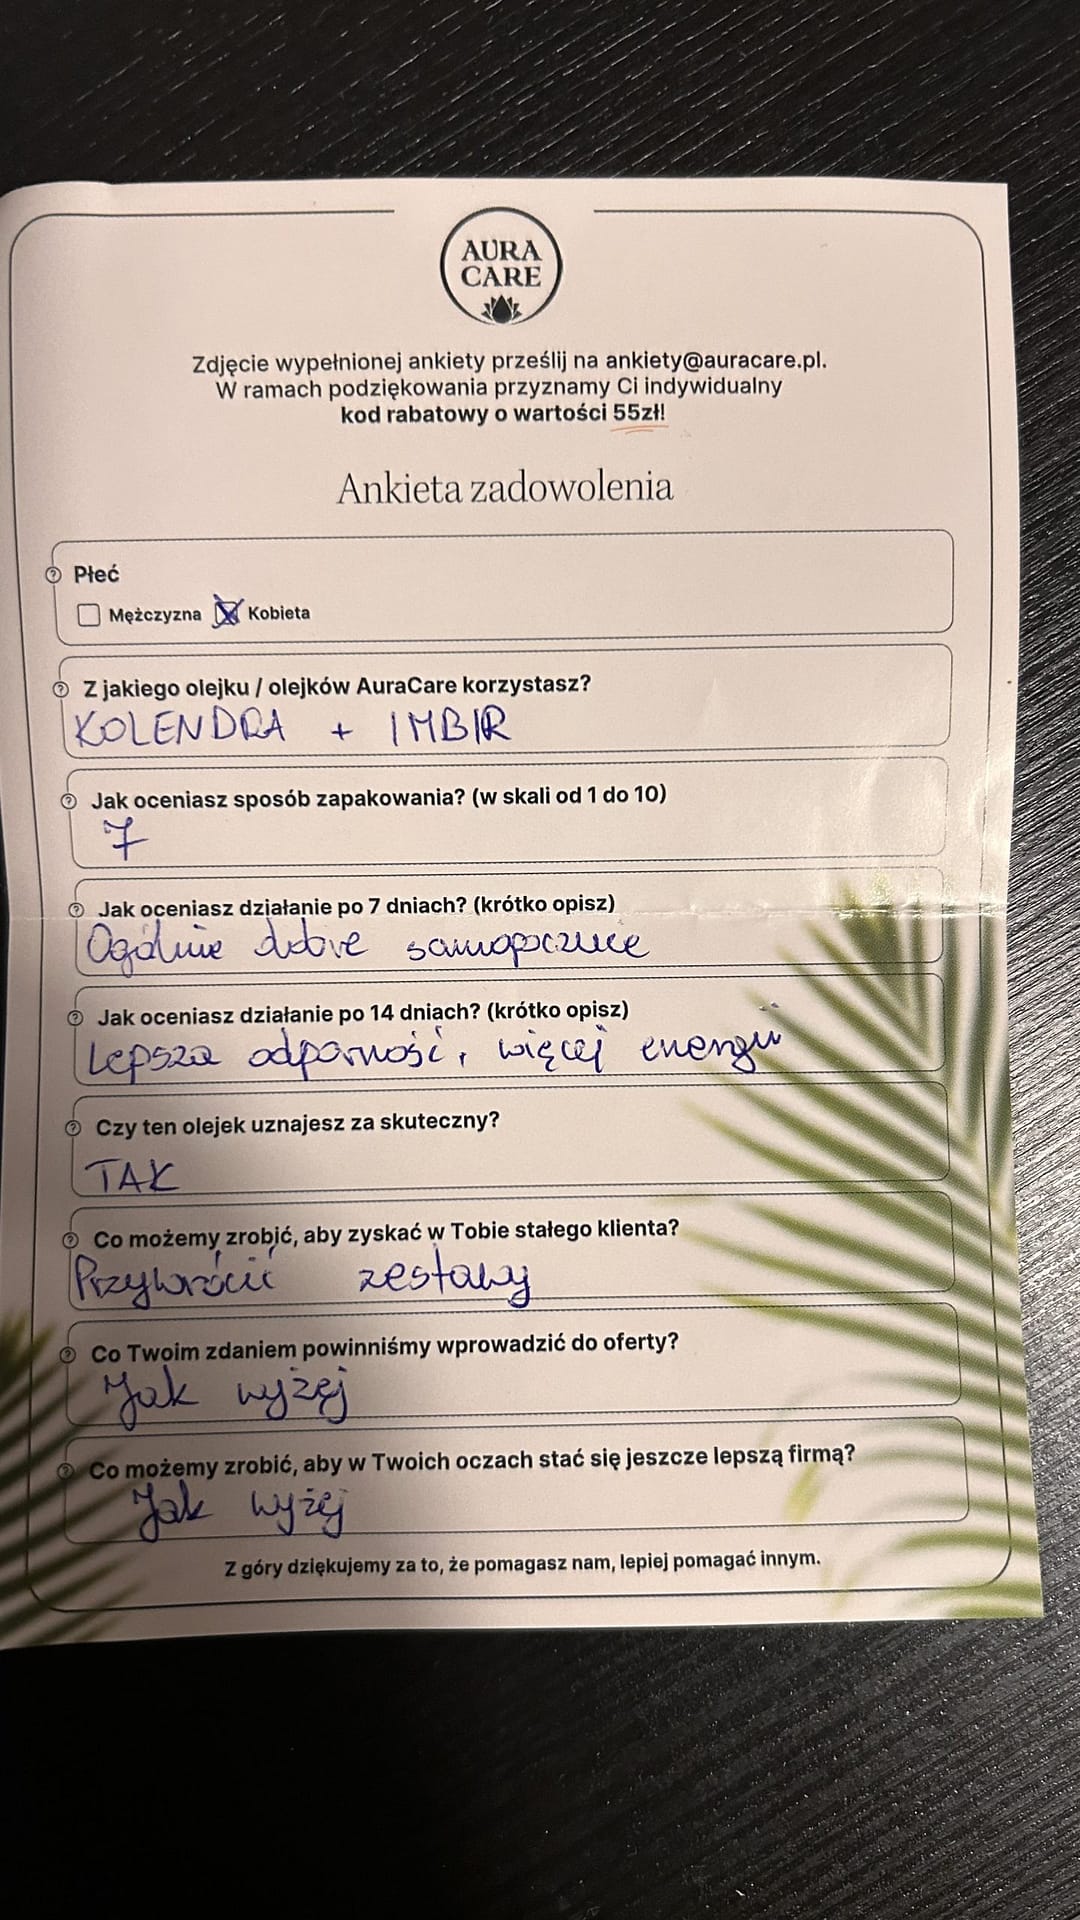 AURA
CARE
Zdjęcie wypełnionej ankiety prześlij na ankiety@auracare.pl.
W ramach podziękowania przyznamy Ci indywidualny
kod rabatowy o wartości 55zł!
Ankieta zadowolenia
Płeć
Mężczyzna Kobieta
Z jakiego olejku / olejków AuraCare korzystasz?
KOLENDRA + IMBIR
Jak oceniasz sposób zapakowania? (w skali od 1 do 10)
7
Jak oceniasz działanie po 7 dniach? (krótko opisz)
Ogólnie dobre samopoczucie
Jak oceniasz działanie po 14 dniach? (krótko opisz)
Lepsza odporność, więcej energii
Czy ten olejek uznajesz za skuteczny?
TAK
Co możemy zrobić, aby zyskać w Tobie stałego klienta?
Przywrócić zestawy
Co Twoim zdaniem powinniśmy wprowadzić do oferty?
Jak wyżej
Co możemy zrobić, aby w Twoich oczach stać się jeszcze lepszą firmą?
Jak wyżej
Z góry dziękujemy za to, że pomagasz nam, lepiej pomagać innym.